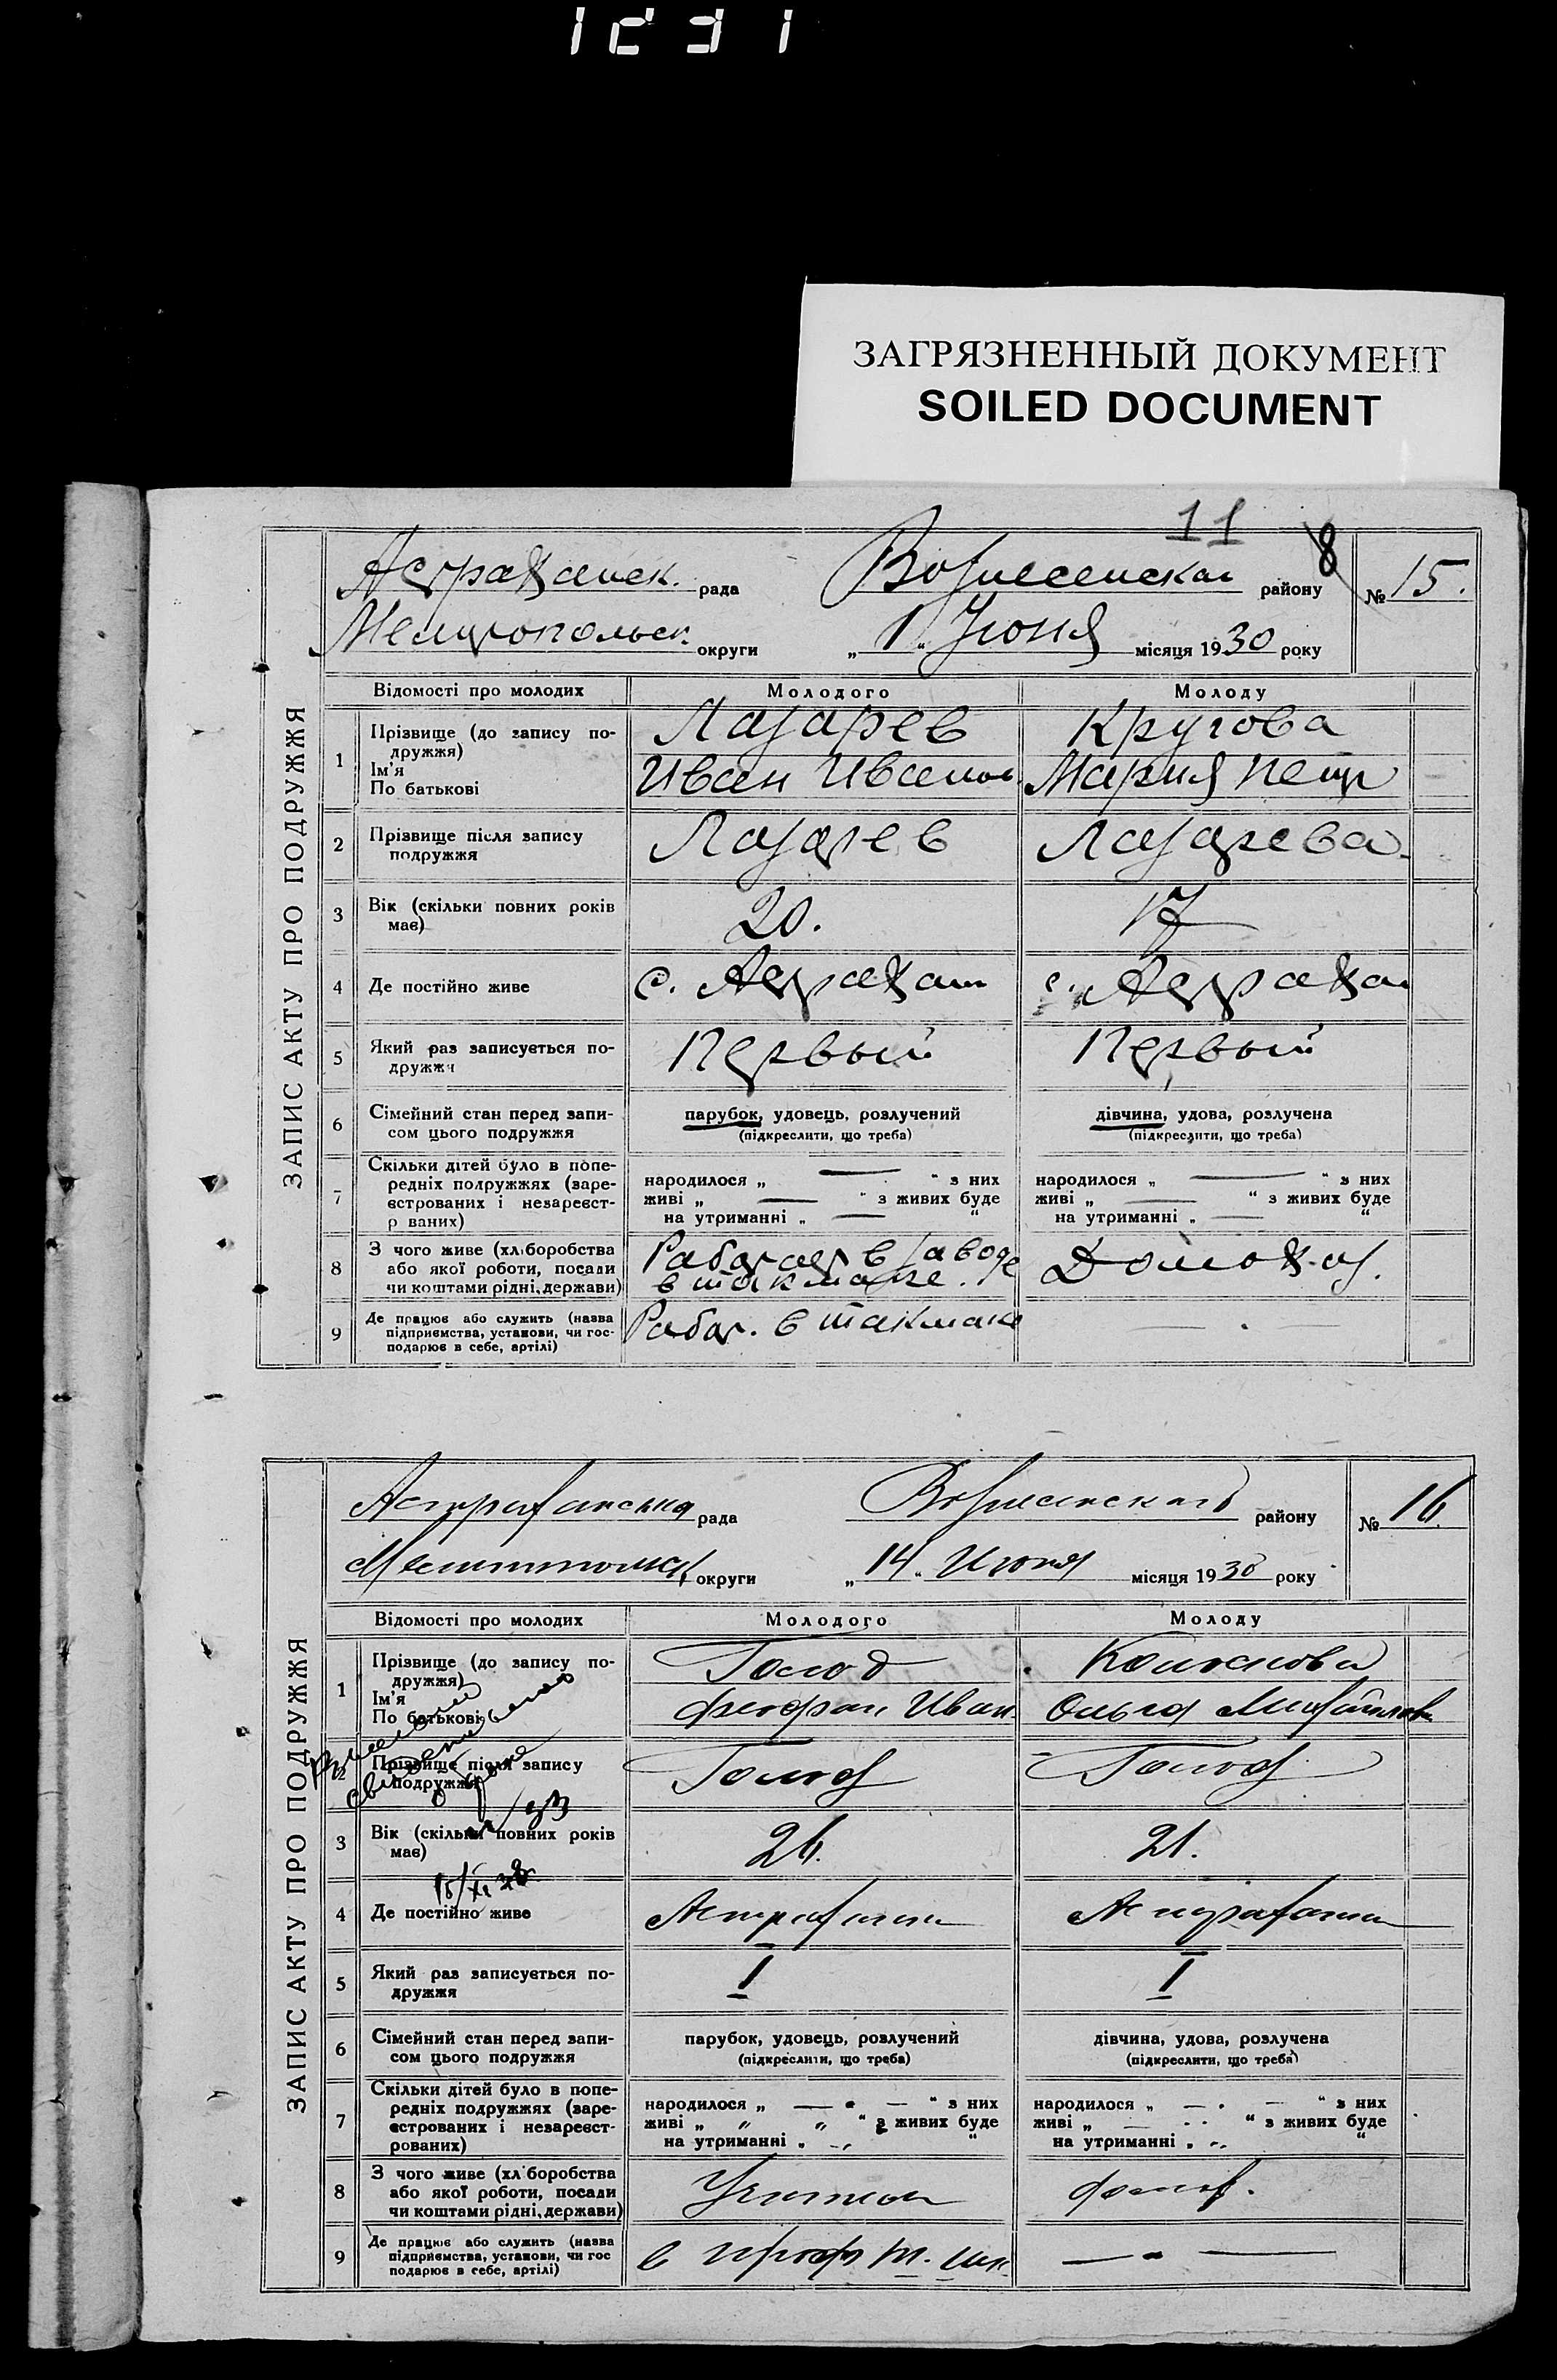 1231
ЗАГРЯЗНЕННЫЙ ДОКУМЕНТ
SOILED DOCUMENT
11 8
ЗАПИС АКТУ ПРО ПОДРУЖЖЯ
Астраханск. рада Вознесенская району № 15.
Мелитопольск. округи „1“ Июня місяця 1930 року
Відомості про молодих Молодого Молоду
1 Прізвище (до запису подружжя) Лазарев Кругова
Ім'я
По батькові Иван Иванов. Мария Петр
2 Прізвище після запису подружжя Лазарев Лазарева.
3 Вік (скільки повних років має) 20. 17
4 Де постійно живе с. Астрахан с. Астрахан
5 Який раз записується подружжя Первый Первый
6 Сімейний стан перед записом цього подружжя парубок, удовець, розлучений дівчина, удова, розлучена
(підкреслити, що треба) (підкреслити, що треба)
7 Скільки дітей було в попередніх подружжях (зареєстрованих і незареєст-р ваних)
народилося „ — “ з них народилося „ — “ з них
живі „ — “ з живих буде живі „ — “ з живих буде
на утриманні „ — “ на утриманні „ — “
8 З чого живе (хліборобства або якої роботи, посади чи коштами рідні, держави) Работает в заводе в Токмаке. Домохоз.
9 Де працює або служить (назва підприємства, установи, чи господарює в себе, артілі) Работ. в Токмаке — . —
ЗАПИС АКТУ ПРО ПОДРУЖЖЯ
Астраханська рада Вознесенского району № 16
округи „14“ Июня місяця 1930 року
Відомості про молодих Молодого Молоду
1 Прізвище (до запису подружжя) Голод
Ім'я
По батькові Феофан Иван. Ольга Михайловн
2 Прізвище після запису подружжя Голод Голод
3 Вік (скільки повних років має) 26. 21.
15/XI 38
4 Де постійно живе Астраханка Астраханка
5 Який раз записується подружжя I I
6 Сімейний стан перед записом цього подружжя парубок, удовець, розлучений дівчина, удова, розлучена
(підкреслити, що треба) (підкреслити, що треба)
7 Скільки дітей було в попередніх подружжях (зареєстрованих і незареєстрованих)
народилося „ — “ з них народилося „ — “ з них
живі „ “ з живих буде живі „ — “ з живих буде
на утриманні „ “ на утриманні „ “
8 З чого живе (хл боробства або якої роботи, посади чи коштами рідні, держави) Учител домох.
9 Де працює або служить (назва підприємства, установи, чи господарює в себе, артілі) в проф т. шк. — —